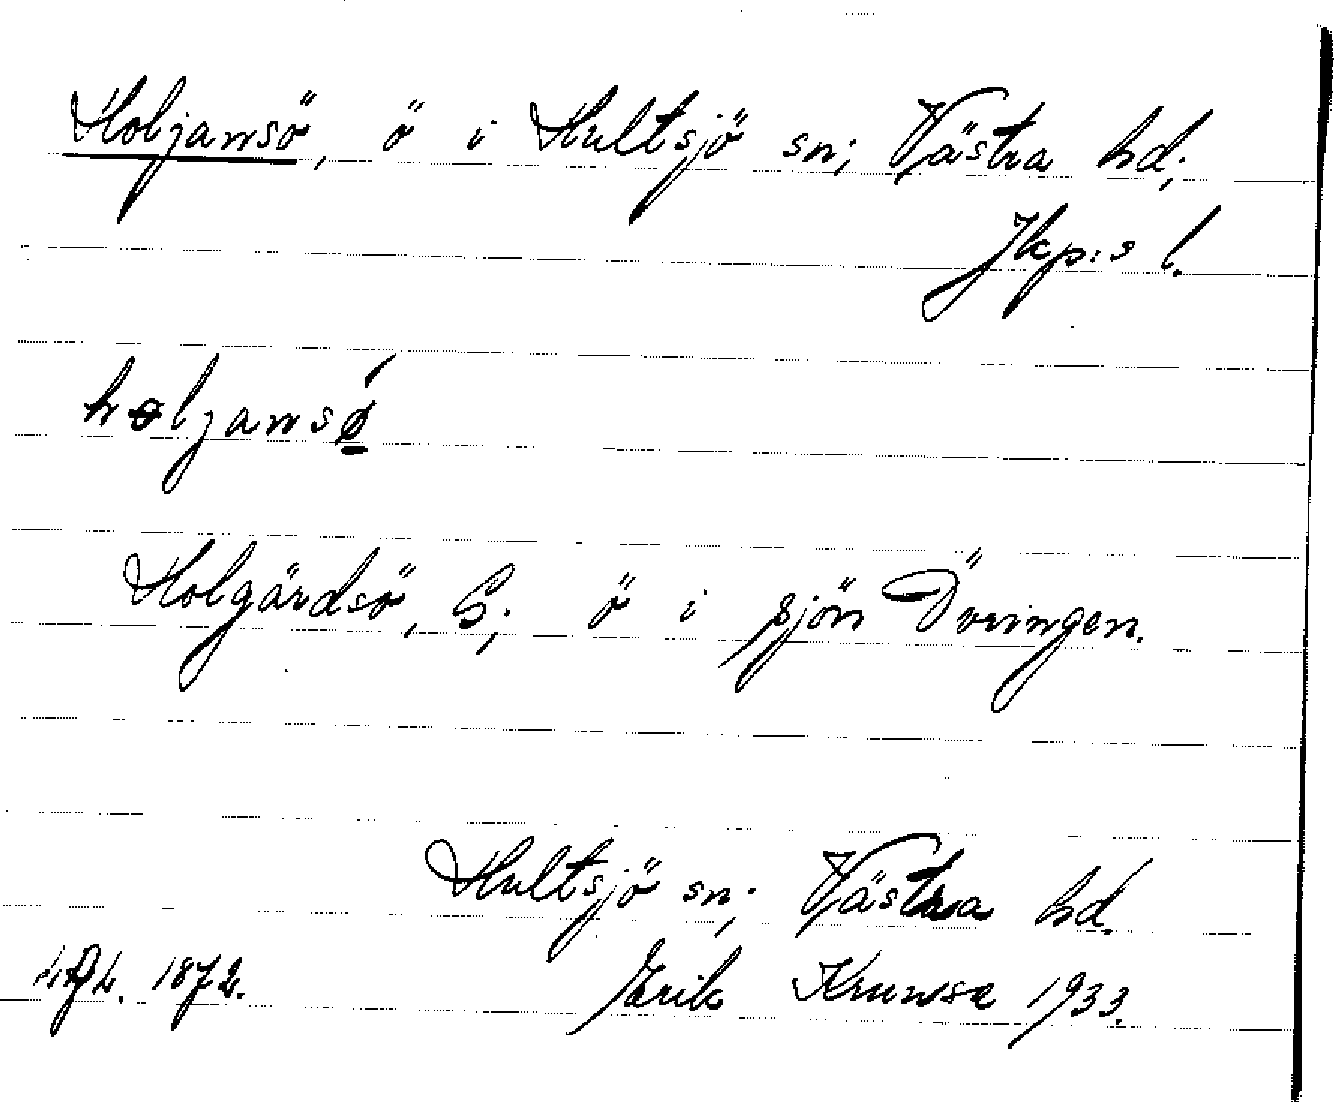 Holjansö, ö i Hultsjö sn; Västra hd;
Jkp:s l.
hɵljansǿ̱
Holgärdsö, S; ö i sjön Övringen.
Hultsjö sn; Västra hd.
1872. Erik Krunsa 1933.